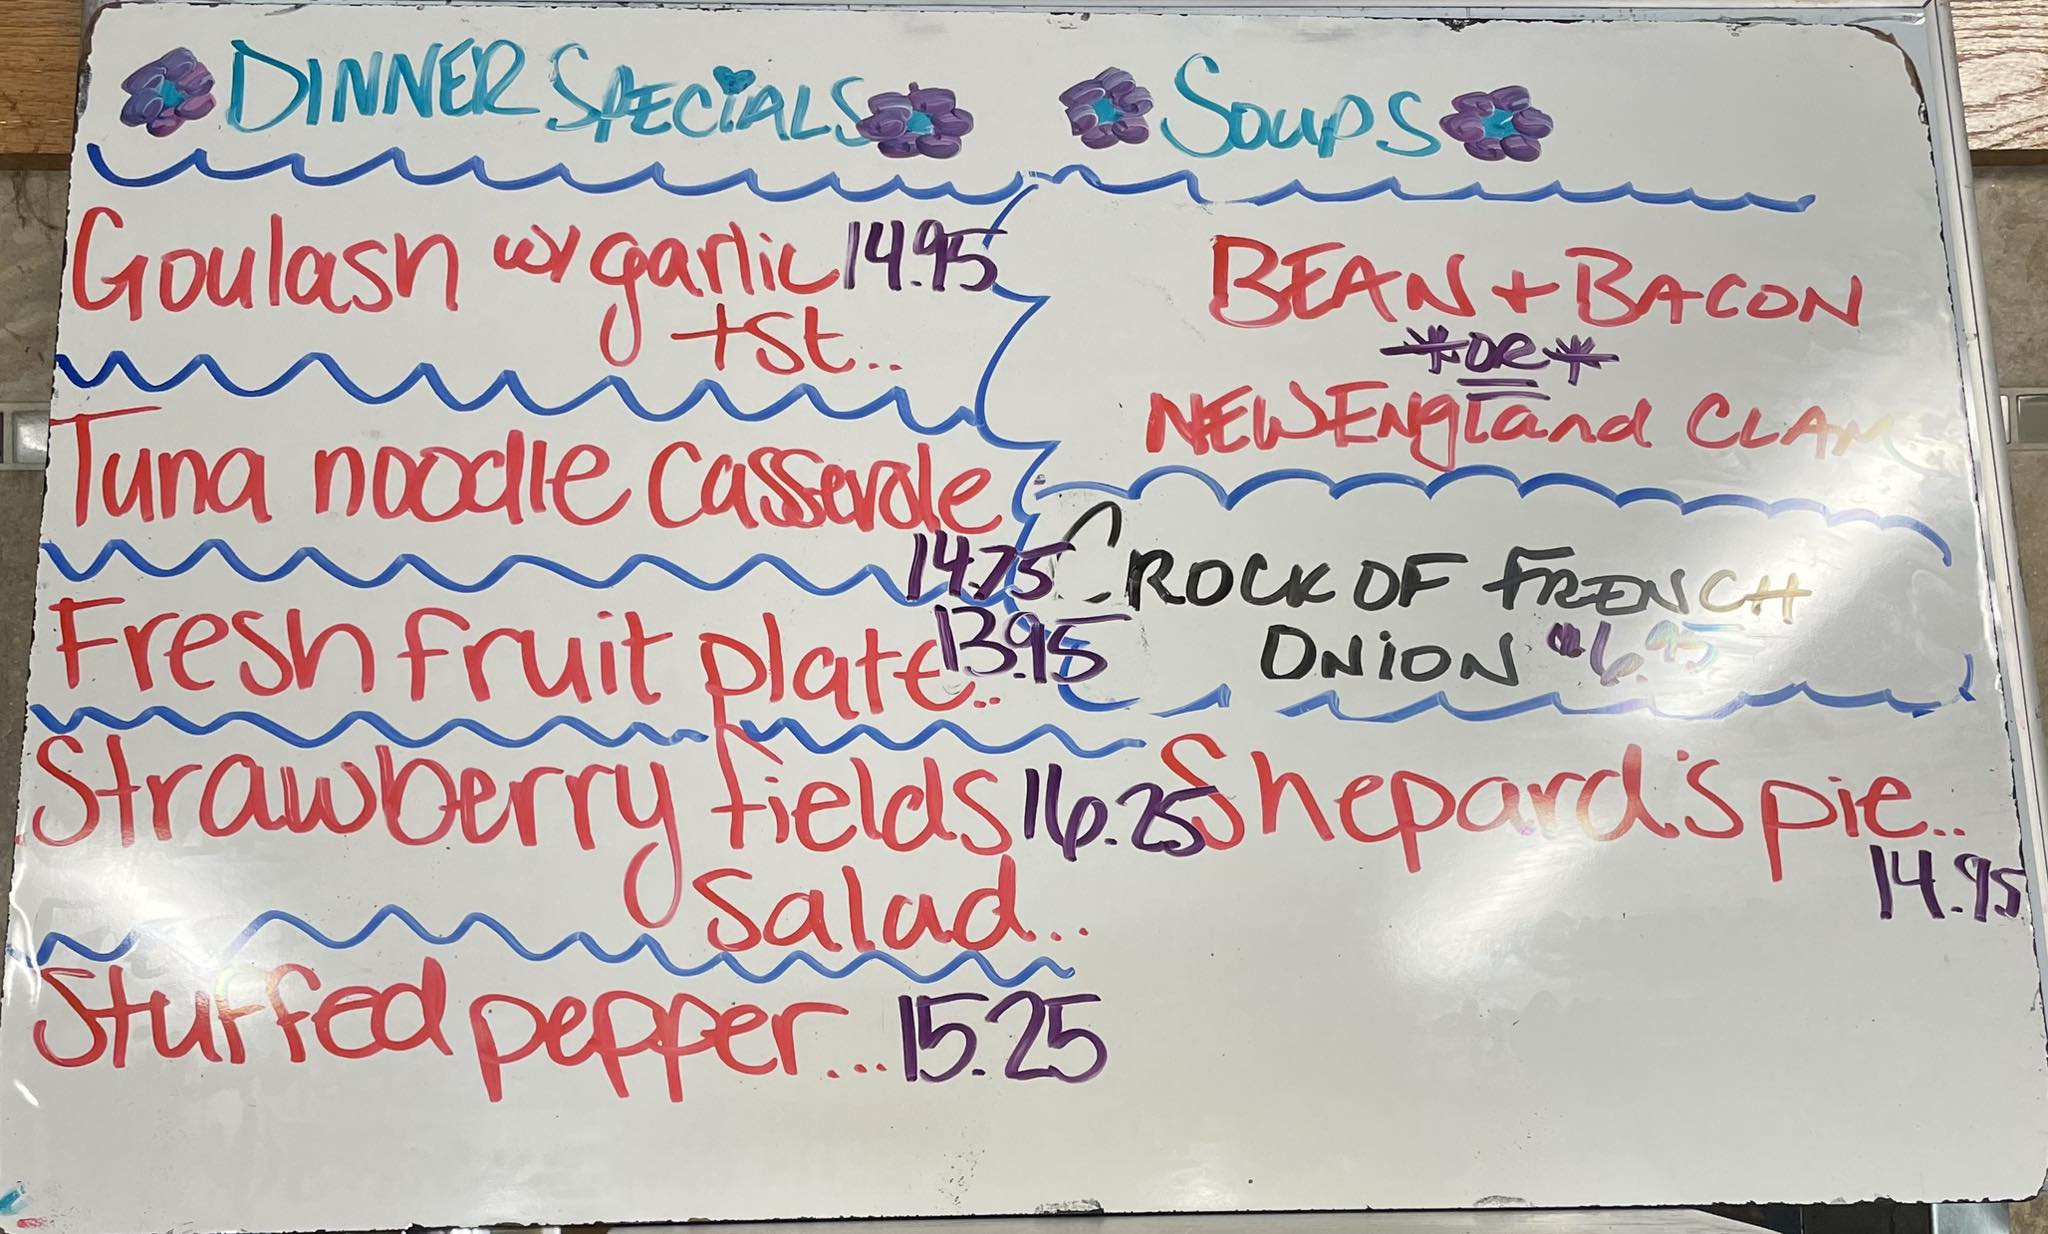 DINNER SPECIALS
Goulash w/ garlic 14.95
+st..
Tuna noodle casserole
14.75
Fresh fruit plate.. 13.95
Strawberry fields 16.25
Salad..
Stuffed pepper... 15.25
Soups
BEAN + BACON
*OR*
NEW ENGLand CLAM
CROCK OF FRENCH
ONION $6.95
Shepard's pie..
14.95